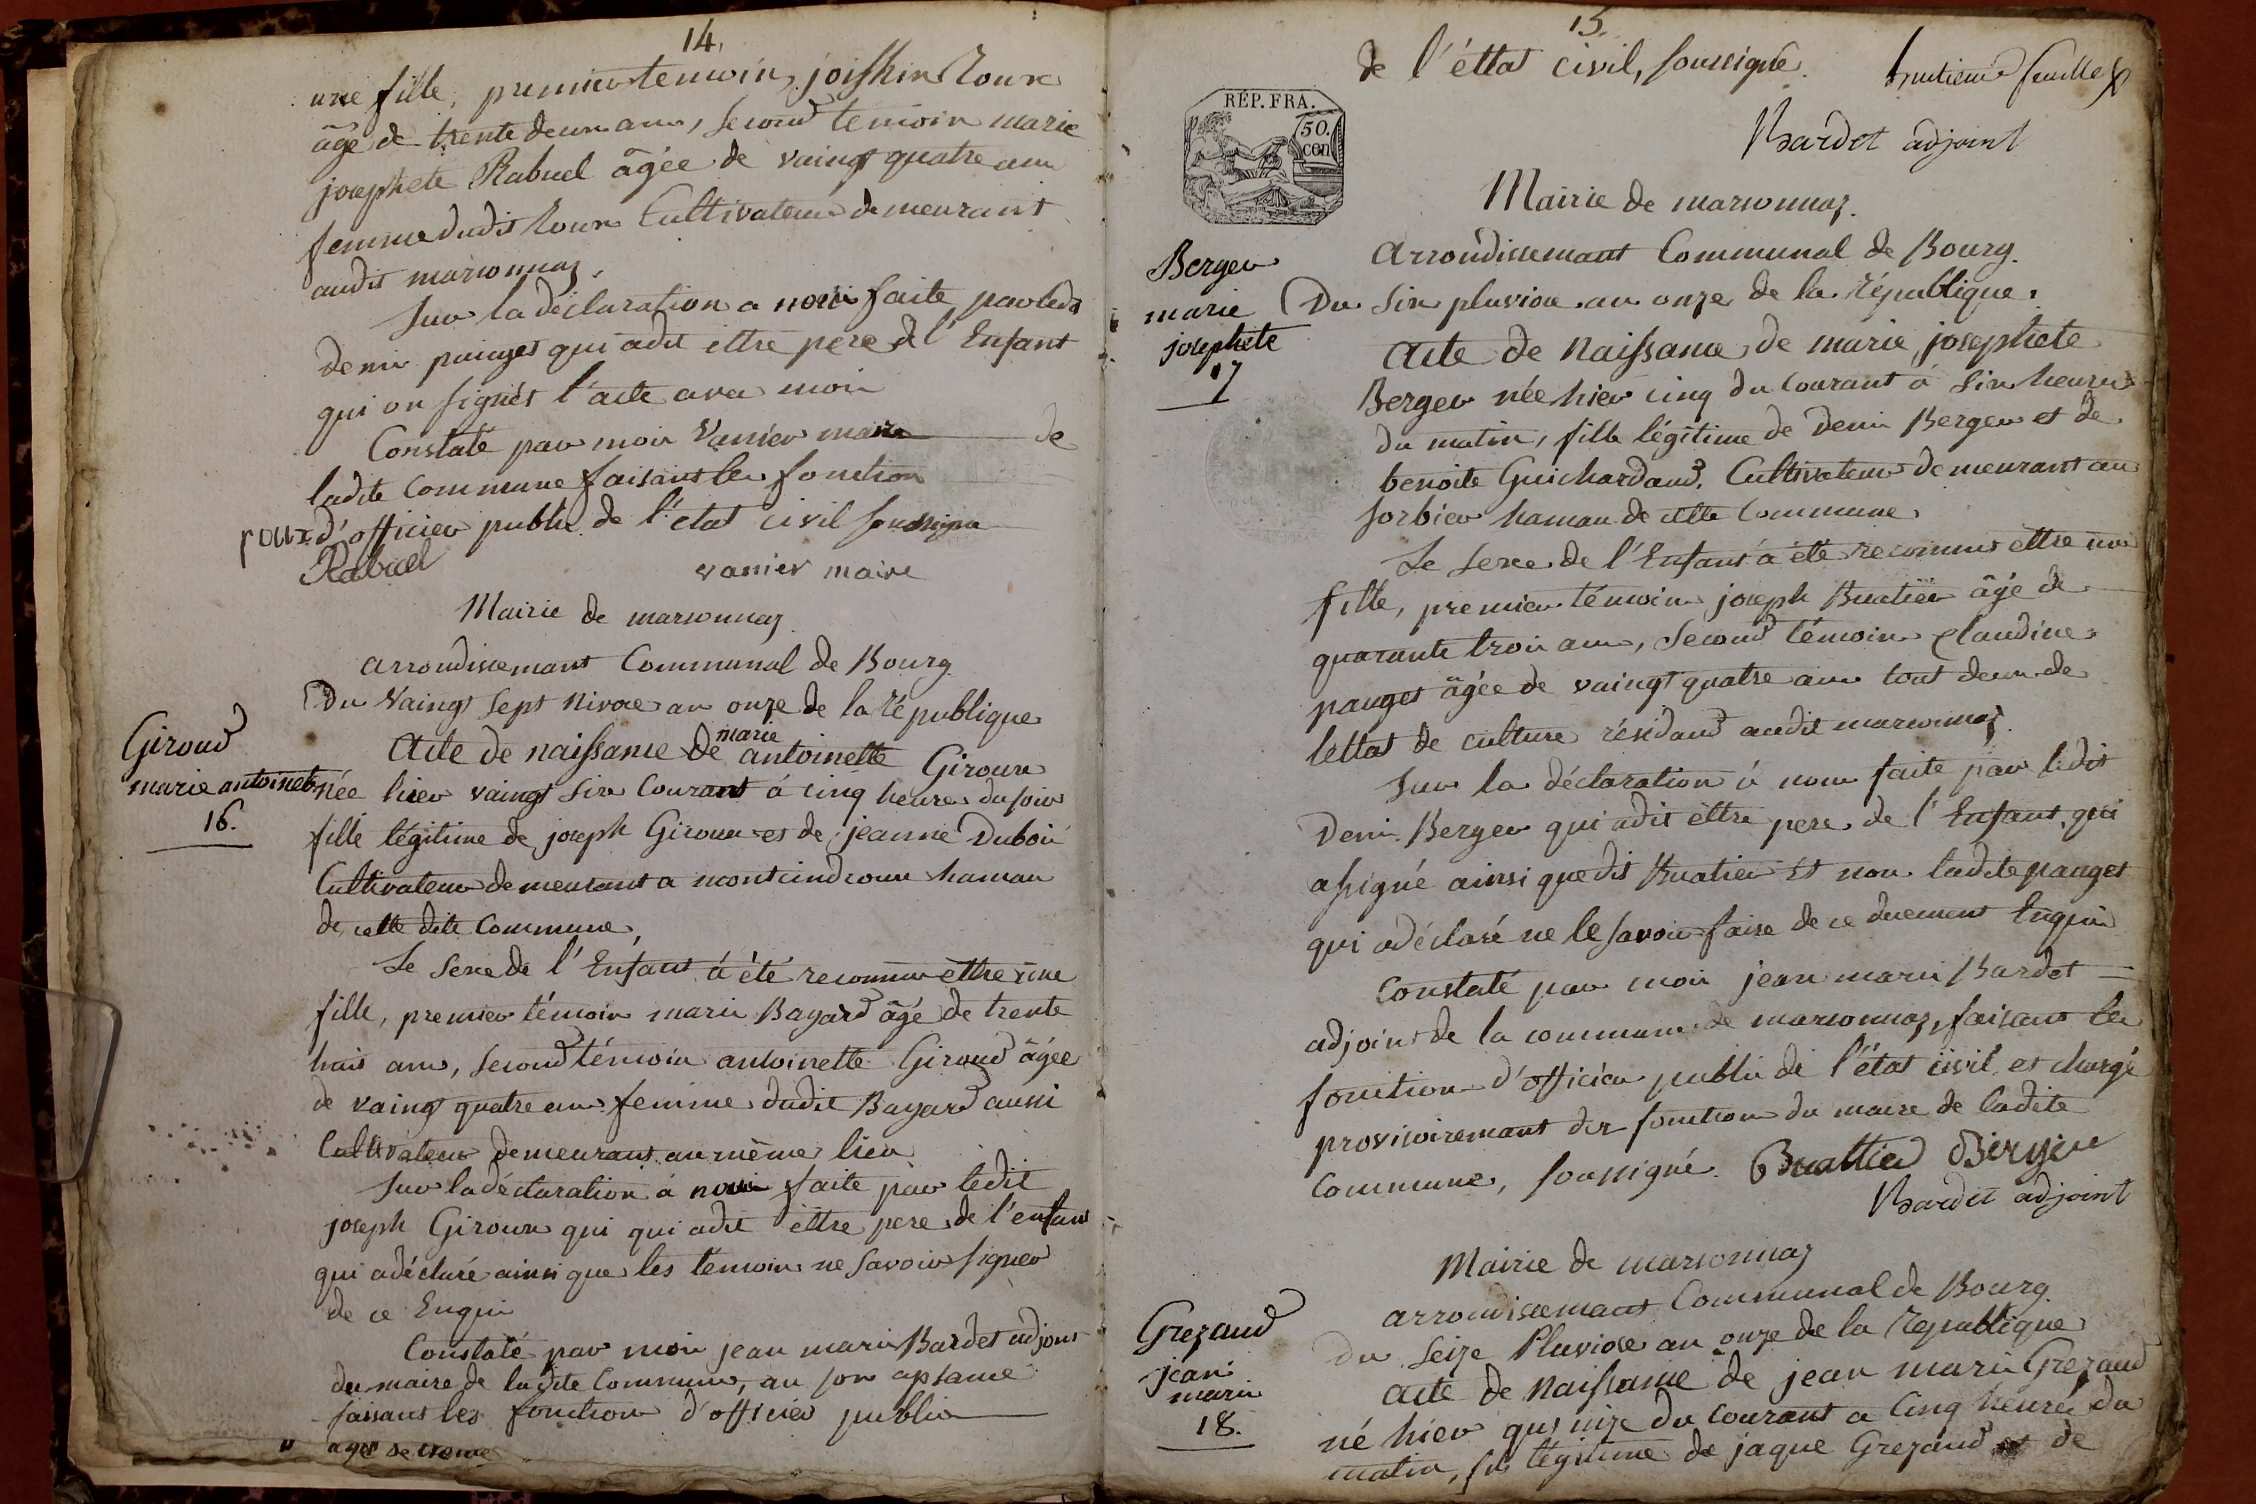 14.
une fille, premier temoin, joisphin Roux
âgé de trente deux ans, second temoin marie
josephete Rabuel âgée de vaingt quatre ans
femme dudit Roux Cultivateur demeurant
audit marsonnaz.
Sur la déclaration a nous faite par ledit
denis panget qui adit ettre pere de l'Enfant
qui on signés l'acte avec moi
Constaté par moi Vanier maire de
ladite Commune faisant les fonction
d'officier public de l'état civil soussigné
roux
Rabuel
vanier maire
Mairie de marsonnaz
arrondissemant Communal de Bourg
Du Vaingt sept Nivose an onze de la république
Giroud
marie antoinete
16.
Acte de naissance de marie antoinette Giroux
née hier vaingt six Courant à cinq heures du soir
fille légitime de joseph Giroux et de jeanne Dubois
Cultivateur demeurant a montcindroux hamau
de cette dite Commune,
Le Sexe de l'Enfant à été reconnu ettre une
fille, premier témoin marie Bayard âgé de trente
huit ans, second témoin antoinette Giroud âgée
de vaingt quatre ans femme dudit Bayard aussi
Cultivateur demeurant au même lieu
Sur la déclaration à nous faite par ledit
joseph Giroux qui qui adit êttre pere de l'enfant
qui adéclaré ainsi que les temoins ne savoir signer
de ce Enquis
Constaté par moi jean marie Bardet adjoint
du maire de ladite Commune, au son apsance
faisant les fonction d'officier public
15.
de l'éttat civil, soussigné.
huitieme feuillet
Bardet adjoint
RÉP. FRA.
50.
cen
Mairie de marsonnaz.
Arrondissemant Communal de Bourg.
Berger
marie
josephete
17
Du Six pluviose an onze de la république.
Acte de Naissance de marie josephete
Berger née hier cinq du Courant à Six heures
du matin, fille légitime de Denis Berger et de
benoite Guichardaud, Cultivateur demeurant au
Sorbier hamau de cette Commune
Le Sexe de l'Enfant à été reconnus ettre une
fille, premier témoin joseph Buatier âgé de
quarante trois ans, Second témoin Claudine
panget âgée de vaingt quatre ans tout deux de
lettat de culture résidand audit marsonnaz.
Sur la déclaration à nous faite par ledit
Denis Berger qui adit êttre pere de l'Enfant qui
assigné ainsi quedit Buatier Et non ladite panget
qui adéclaré ne le Savoir faire de ce duement Enquis
Constaté par moi jean marie Bardet
adjoint de la commune de marsonnaz, faisant les
fonction d'officier public de l'état civil et chargé
provisoiremant des fonction du maire de ladite
Commune, soussigné. Buattier Bergier
Bardet adjoint
Mairie de marsonnaz
arrondissemant Communal de Bourg.
Grezaud
jean
marie
18.
du Seize Pluviose an onze de la République
Acte de Naissance de jean marie Grezaud
né hier quinize du Courant a Cinq heures du
matin, fils légitime de jaque Grezaud et de